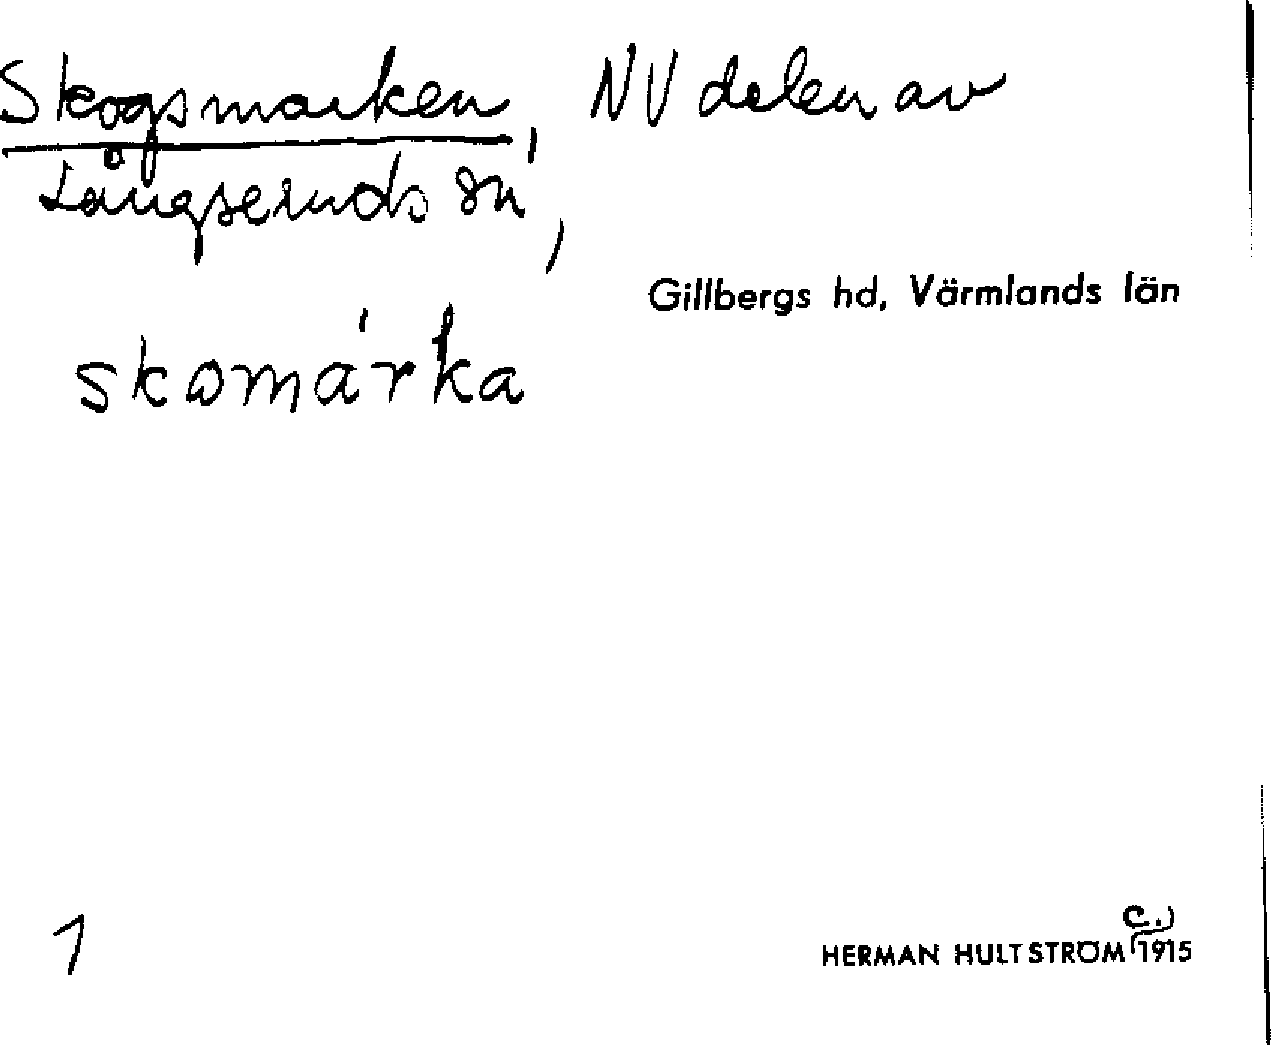 Skogsmarken, NV delen av
Långseruds sn,
Gillbergs hd, Värmlands län
skomárka
1
HERMAN HULTSTRÖM c.) 1915